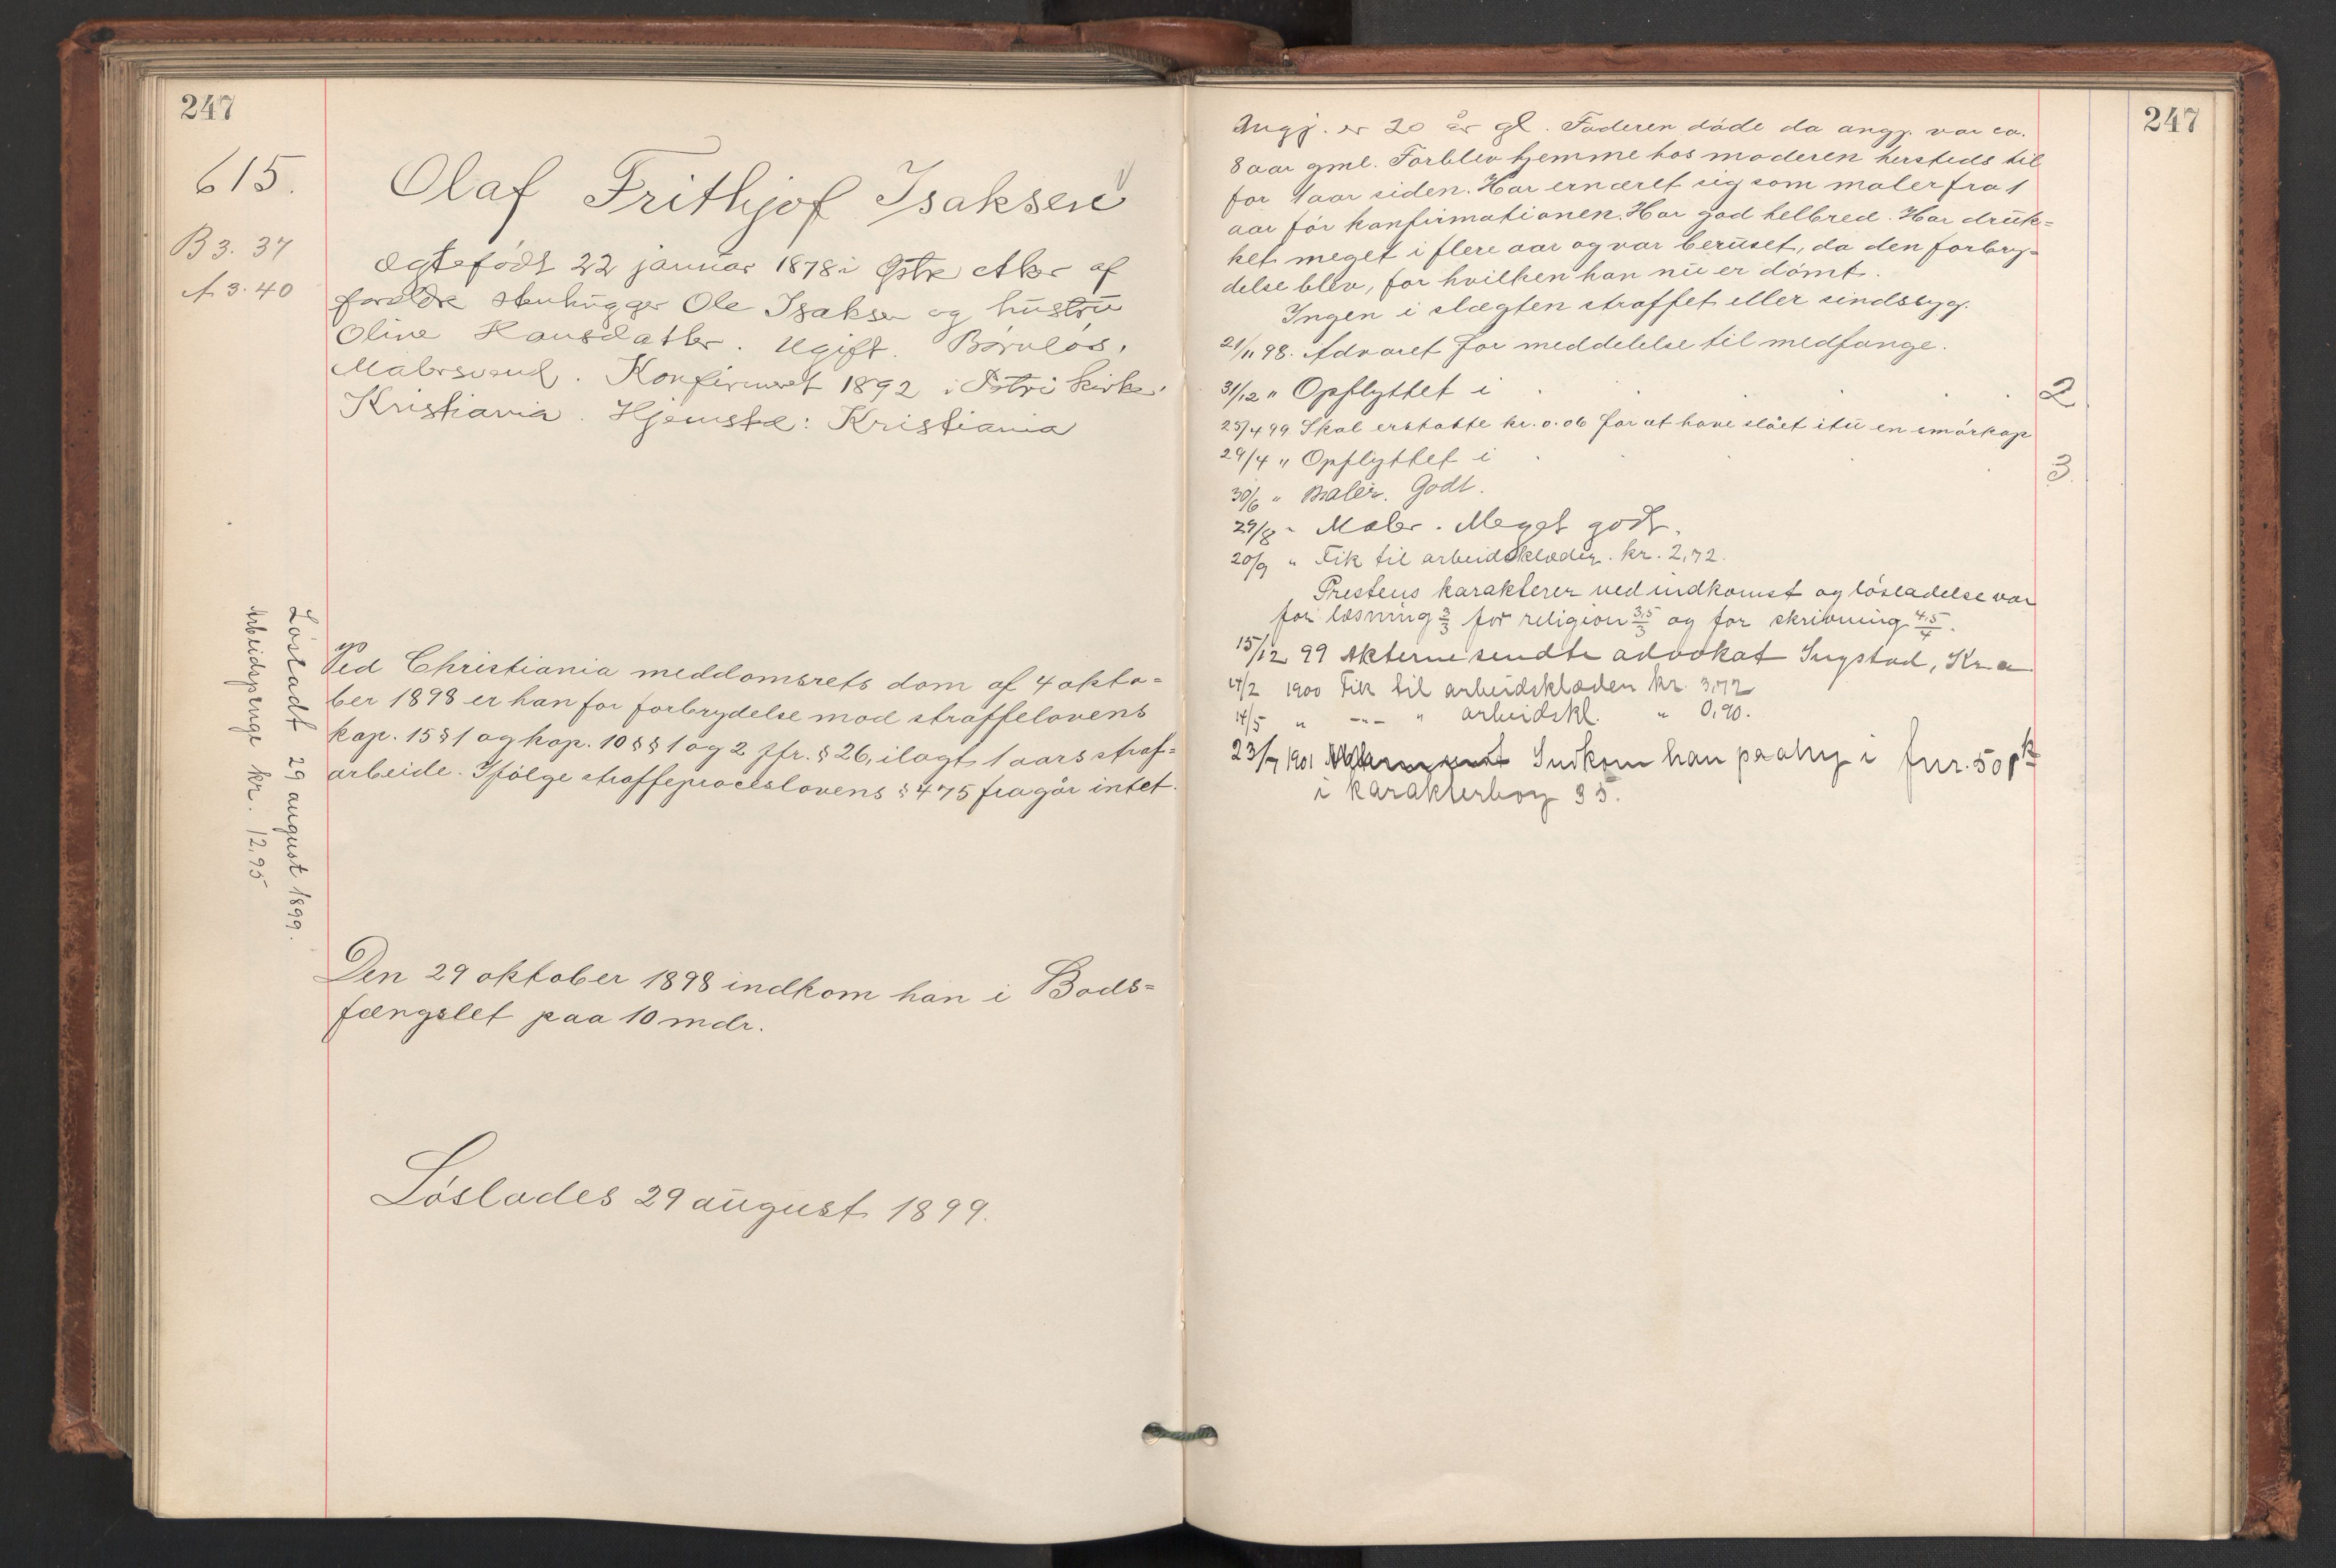 247
615.
B 3. 37
A 3. 40
Olaf Frithjof Isaksen
Ægtefödt 22 januar 1878 i Östre Aker af
forældre stenhugger Ole Isaksen og hustru
Oline Hansdatter. Ugift. Barnlös.
Malersvend. Konfirmeret 1892 i Petri kirke,
Kristiania. Hjemsted: Kristiania
Ved Christiania meddomsrets dom af 4 okto=
ber 1898 er han for forbrydelse mod straffelovens
kap. 15 § 1 og kap. 10 §§ 1 og 2 jfr. § 26, ilagt 1 aars straf=
arbeide. Ifölge straffeproceslovens § 475 fragår intet.
Lösladt 29 august 1899.
Arbeidspenge kr. 12,95
Den 29 oktober 1898 indkom han i Bods=
fængslet paa 10 mdr.
Löslades 29 august 1899.
247
Angj. er 20 år gl. Faderen döde da angj. var ca.
8 aar gml. Forblev hjemme hos moderen hersteds til
for 1 aar siden. Har ernæret sig som maler fra 1
aar för konfirmationen. Har god helbred. Har druk=
ket meget i flere aar og var beruset, da den forbry=
delse blev, for hvilken han nu er dömt.
Ingen i slægten straffet eller sindssyg.
21/11 98. Advaret for meddelelse til medfange.
31/12 " Opflyttet i . . . . 2
25/4 99 Skal erstatte kr. 0.06 for at have slået itu en smörkop
29/4 " Opflyttet i . . . . 3.
30/6 " Maler. Godt.
29/8 " Maler. Meget godt.
20/9 " Fik til arbeidsklæder. kr. 2,72.
Prestens karakterer ved indkomst og lösladelse var
for læsning 3/3 for religion 3,5/3 og for skrivning 4,5/4.
15/12 99 Akterne sendte advokat Ingstad, Kr.a.
14/2 1900 Fik til arbeidsklæder kr. 3,72
14/5 " -"- " arbeidskl. " 0,90.
23/7 1901 Indkom han paany i fnr. 50
i karakterbog 35.